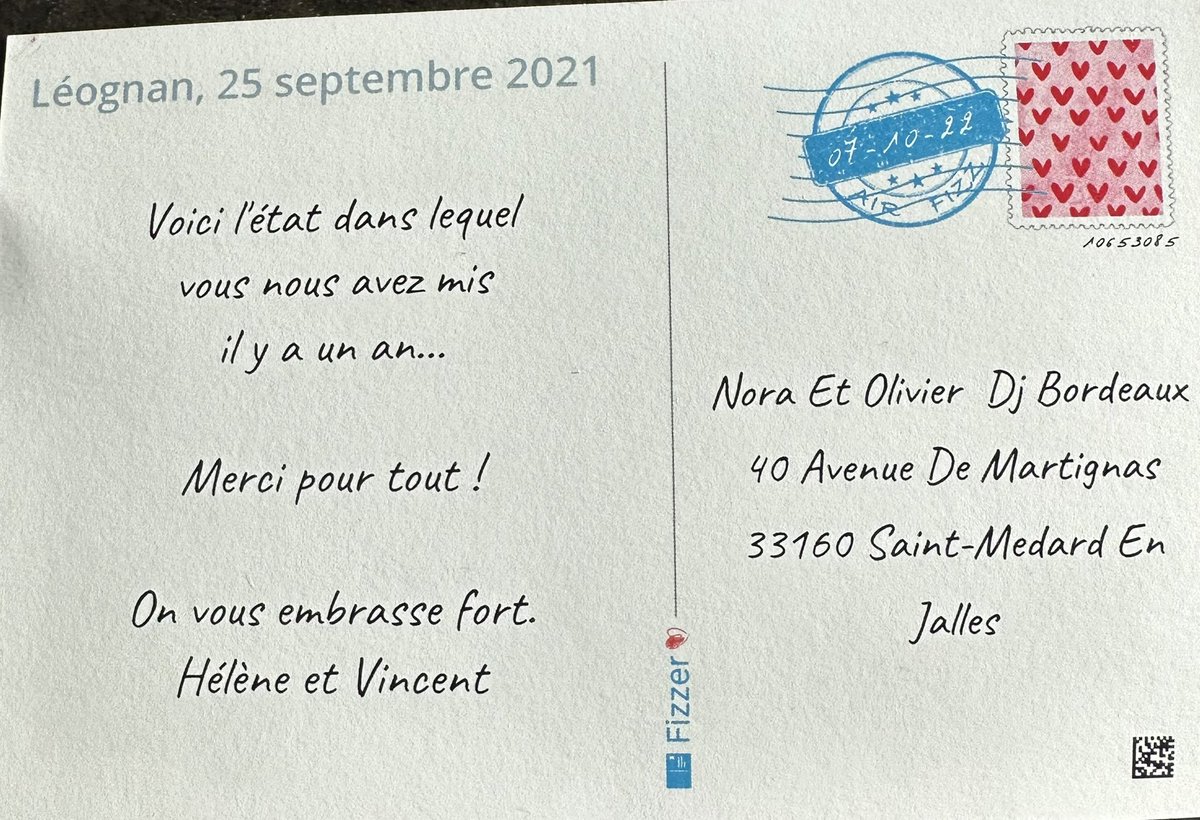 Léognan, 25 septembre 2021
Voici l'état dans lequel
vous nous avez mis
il y a un an...
Merci pour tout !
On vous embrasse fort.
Hélène et Vincent
Fizzer
07-10-22
AIR FIZZ
10653085
Nora Et Olivier Dj Bordeaux
40 Avenue De Martignas
33160 Saint-Medard En
Jalles